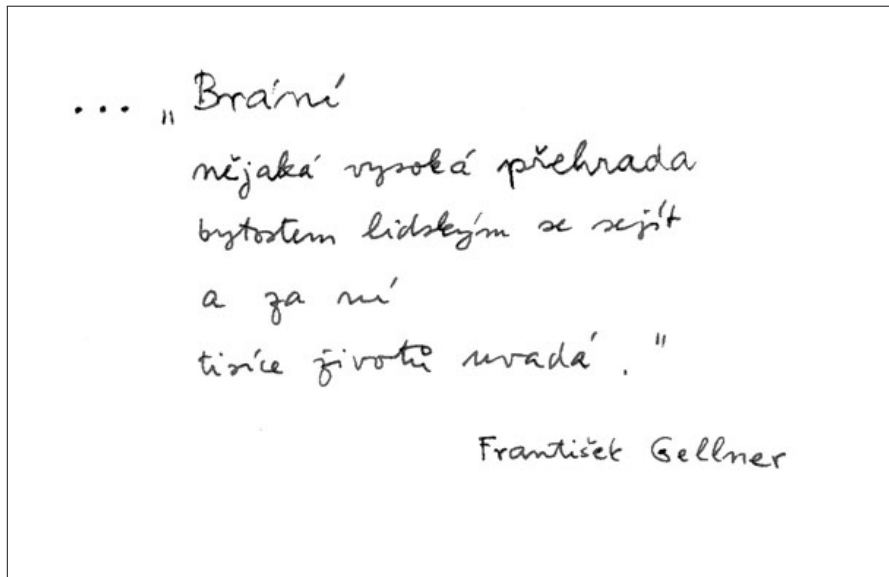 ... „Brání
nějaká vysoká přehrada
bytostem lidským se sejít
a za ní
tisíce životů uvadá."
František Gellner